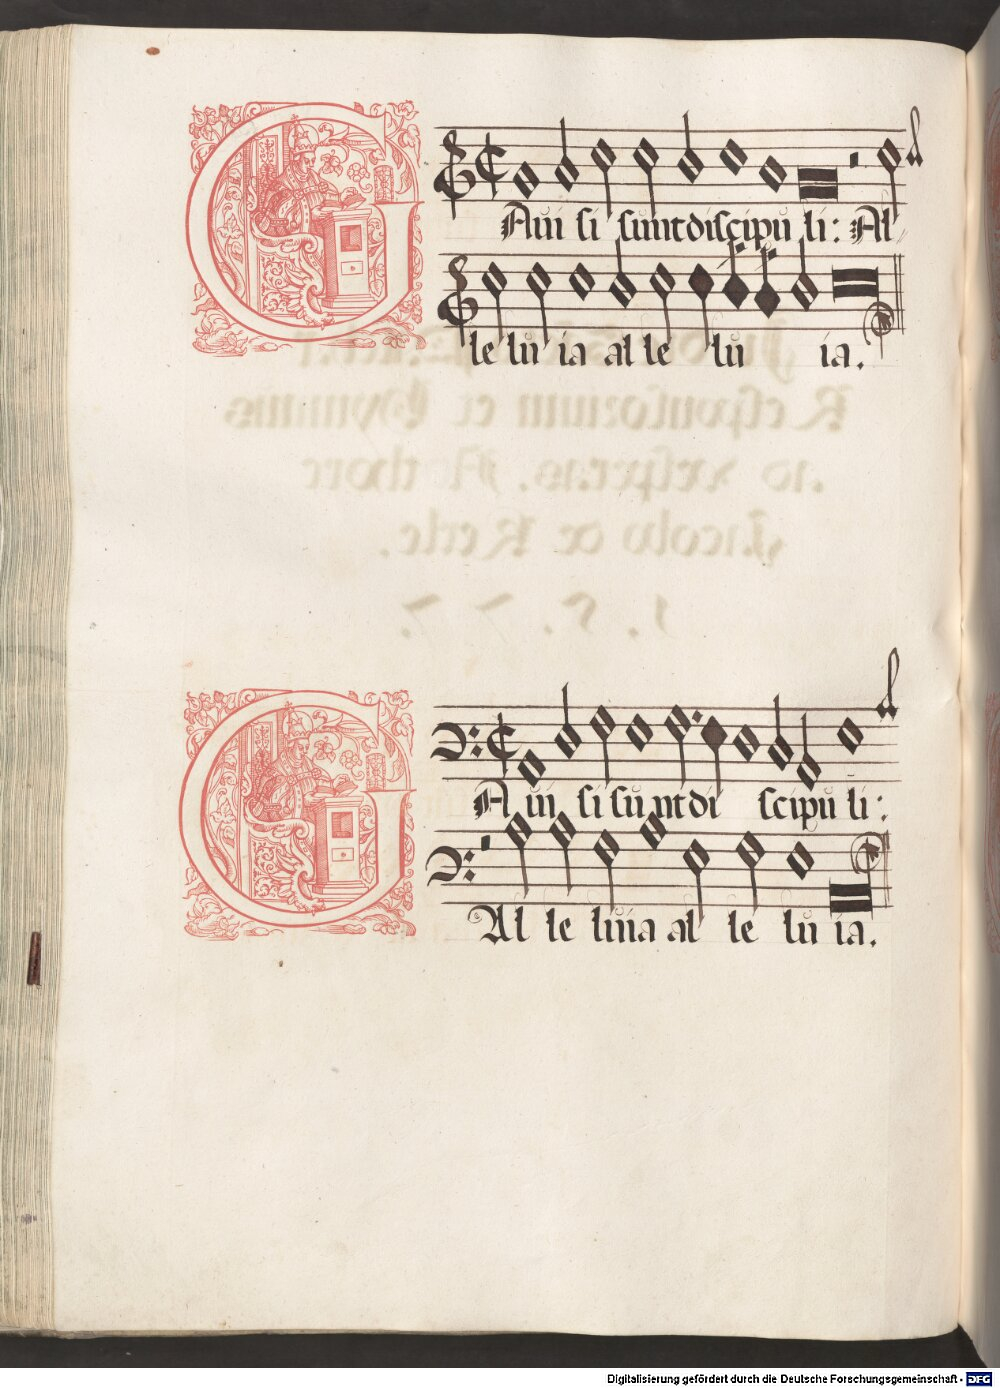 GAui si sunt discipuli: Al
le lu ia al le lu ia.
GAui si sunt di scipu li:
Al le luia al le lu ia.
Digitalisierung gefördert durch die Deutsche Forschungsgemeinschaft - DFG